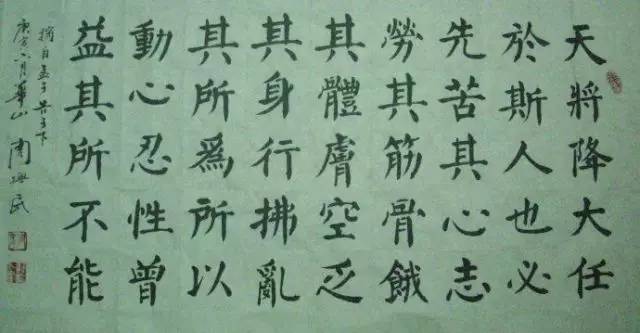 天將降大任
於斯人也必
先苦其心志
勞其筋骨餓
其體膚空乏
其身行拂亂
其所為所以
動心忍性曾
益其所不能
摘自孟子告子下